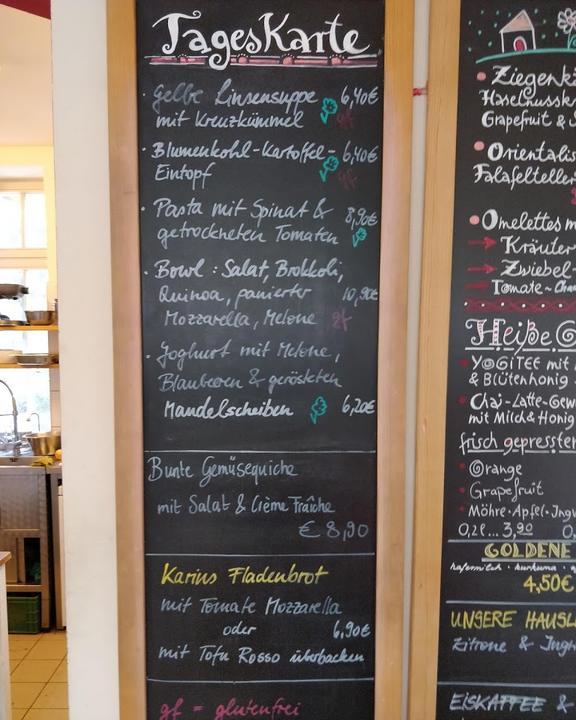 TagesKarte
· Gelbe Linsensuppe 6,40€
mit Kreuzkümmel gf
· Blumenkohl-Kartoffel- 6,40€
Eintopf gf
· Pasta mit Spinat & 8,90€
getrockneten Tomaten
· Bowl: Salat, Brokkoli,
Quinoa, panierter 10,90€
Mozzarella, Melone gf
· Joghurt mit Melone,
Blaubeeren & gerösteten
Mandelscheiben 6,20€
Bunte Gemüsequiche
mit Salat & Crème Fraîche
€ 8,90
Karins Fladenbrot
mit Tomate Mozzarella
oder 6,90€
mit Tofu Rosso überbacken
gf = glutenfrei
Ziegenkä
Haselnussk
Grapefruit &
Orientalis
Falafelteller
Omelettes m
→ Kräuter
→ Zwiebel-
→ Tomate-
Heiße
YOGiTEE mit
& Blütenhonig
Chai-Latte-Gew
mit Milch & Honig
frisch gepresster
Orange
Grapefruit
Möhre-Apfel-Ingw
0,2l...3,90
GOLDENE
hafermilch · kurkuma
4,50€
UNSERE HAUSL
Zitrone & Ingw
EISKAFFEE &